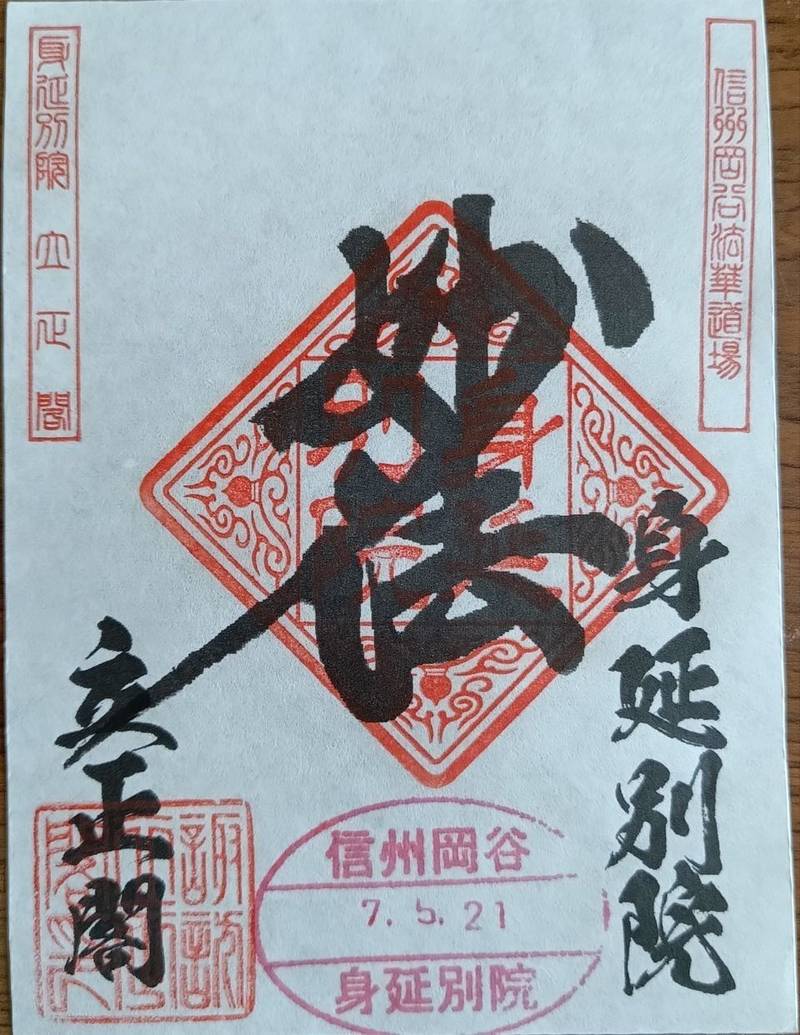 信州岡谷法華道場
身延別院
妙法
立正閣
身延別院 立正閣
信州岡谷
7.5.21
身延別院